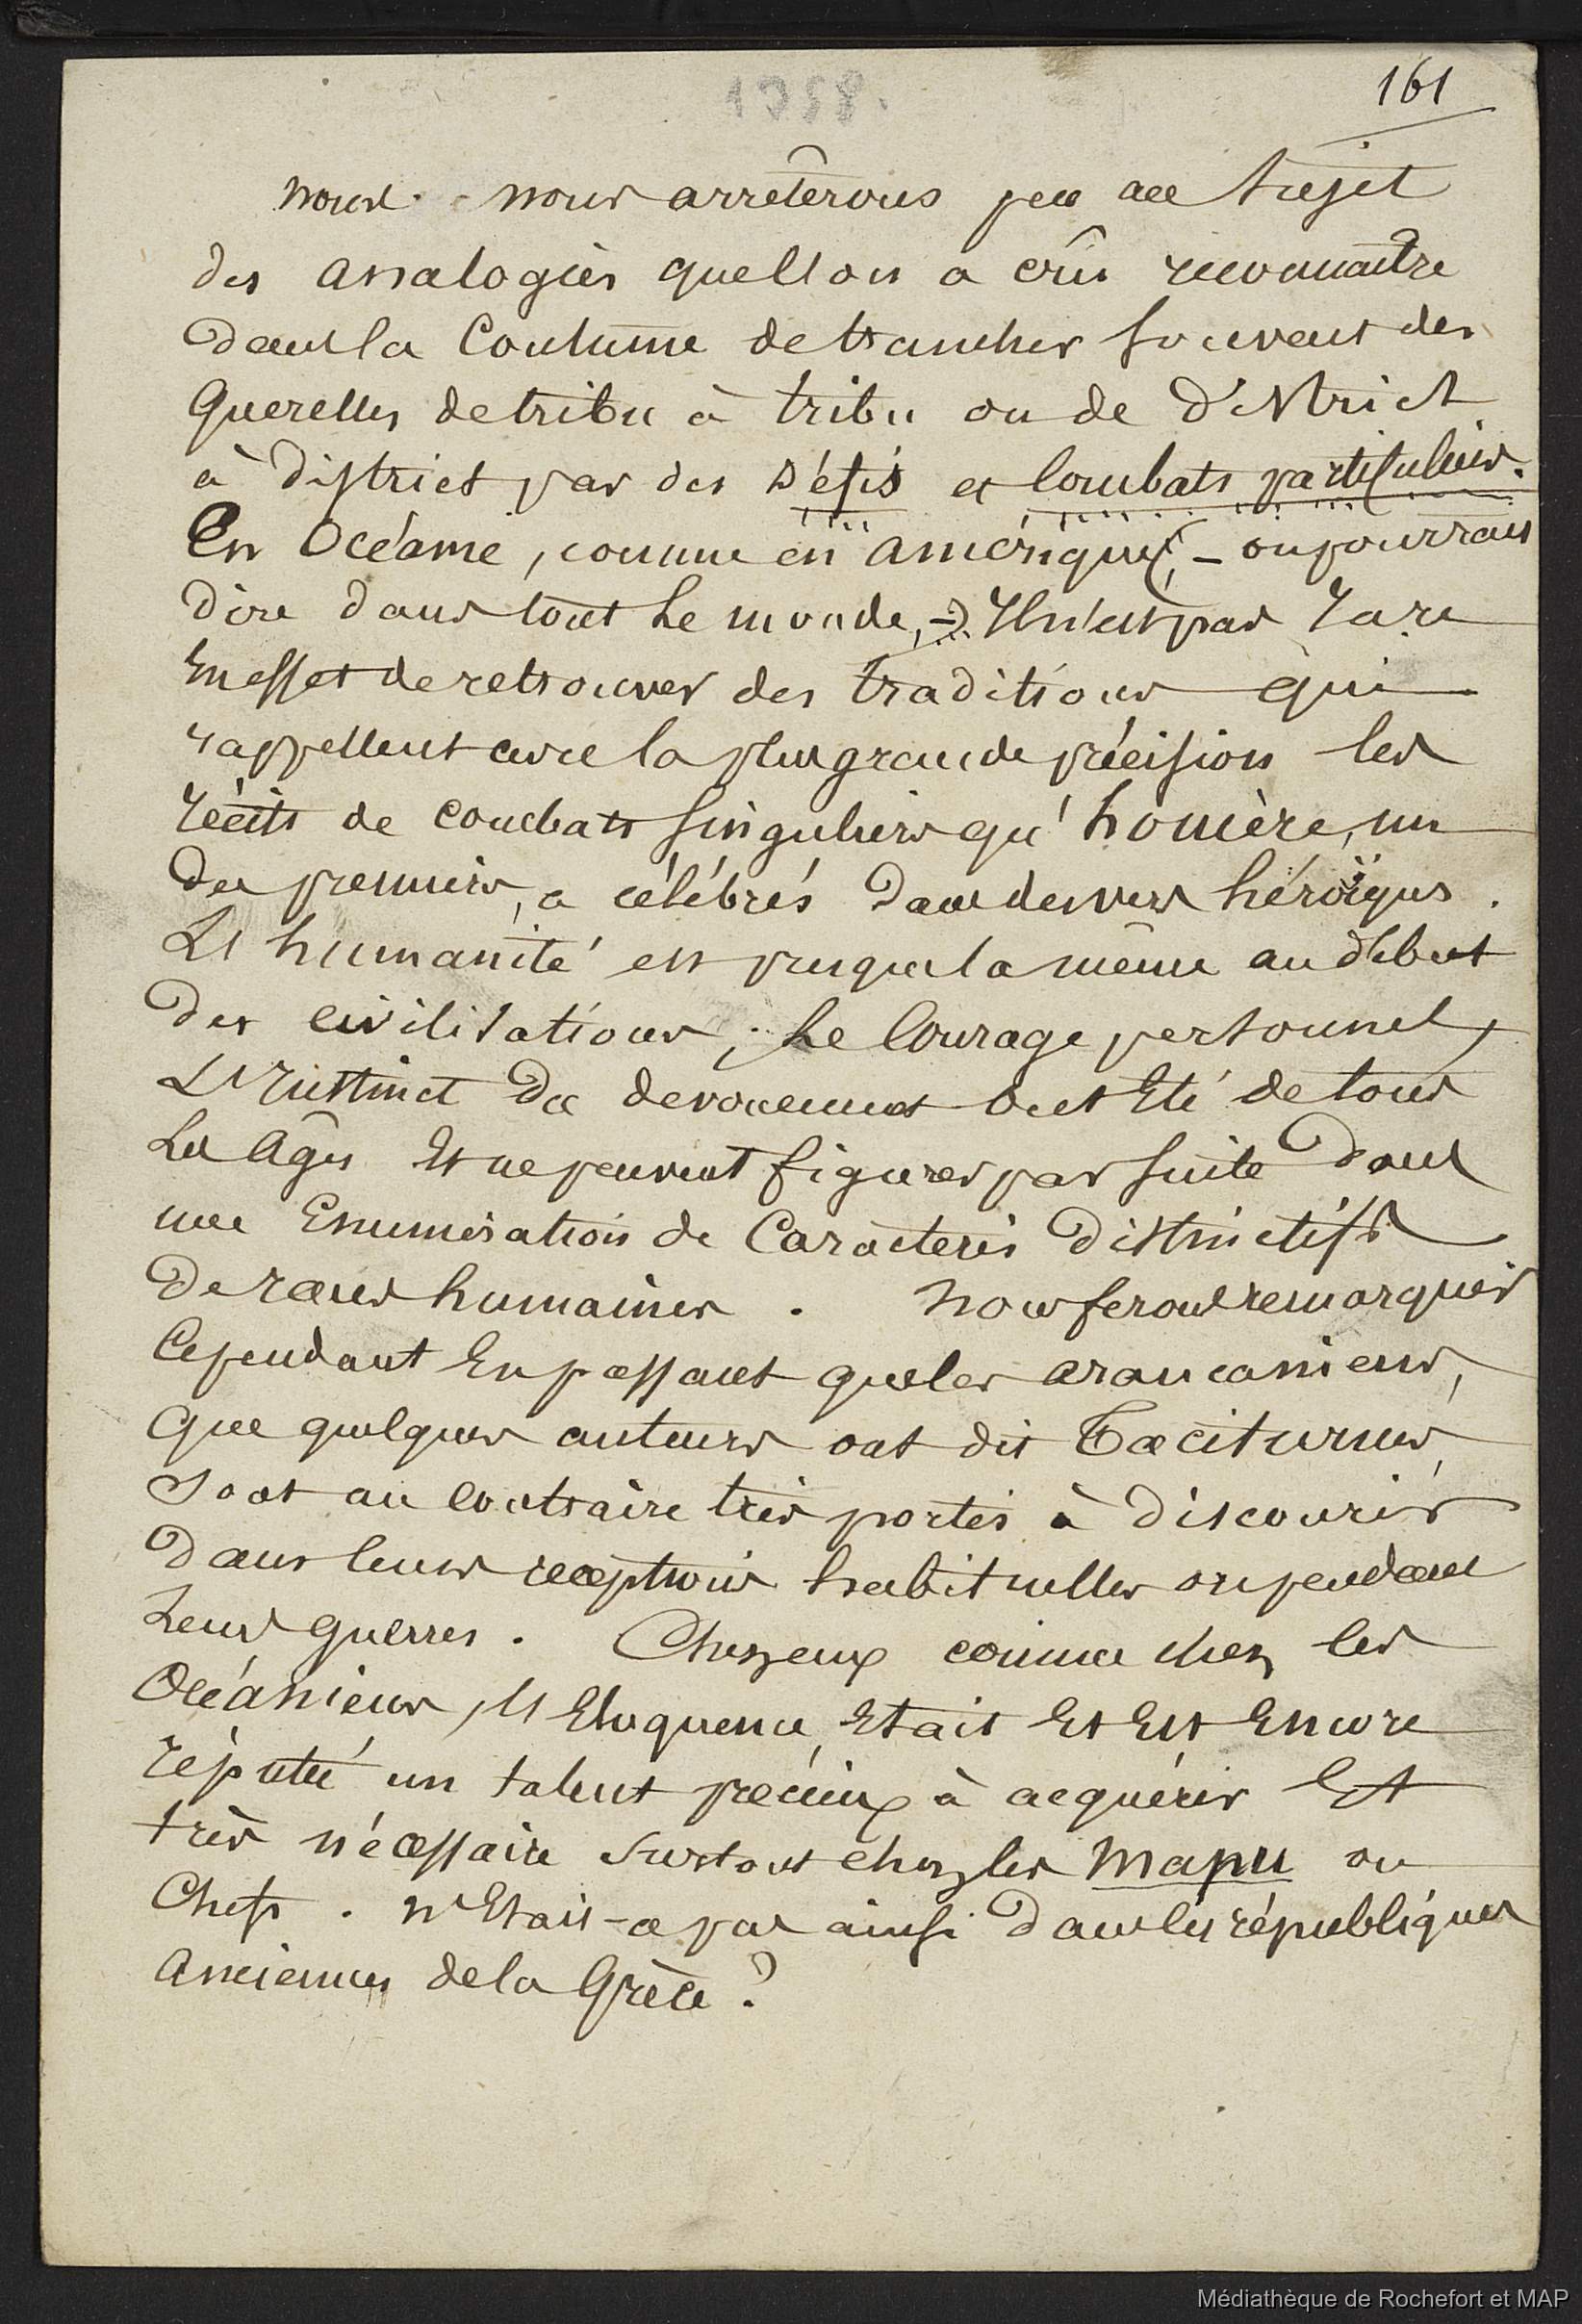 161
1758.
nous nous arrêterons peu au sujet
des analogies que l'on a crû reconnaître
dans la Coutume de trancher souvent des
querelles de tribu à tribu ou de District
à District par des Défis et Combats particuliers.
En Océanie, comme en amérique, (- on pourrait
dire dans tout le monde, -) Il n'est pas rare
En effet de retrouver des traditions qui
rappellent avec la plus grande précision les
récits de combats singuliers qu'homère, un
des premiers, a célébrés dans des vers héroïques.
L'humanité est presque la même au début
des civilisations ; Le Courage personnel,
L'Instinct du dévouement ont Eté de tous
Les âges Et ne peuvent figurer par suite dans
une Enumération de Caractères distinctifs
de races humaines. nous ferons remarquer
Cependant En passant que les araucaniens,
que quelques auteurs ont dit Taciturnes,
sont au contraire très portés à discourir
dans leurs réceptions habituelles ou pendant
Leurs guerres. Chez eux comme chez les
Océaniens, l'Eloquence, Etait Et Est Encore
réputée un talent précieux à acquérir Et
très nécessaire surtout chez les Mapu ou
Chefs. n'Etait-ce pas ainsi dans les républiques
anciennes de la Grèce ?
Médiathèque de Rochefort et MAP